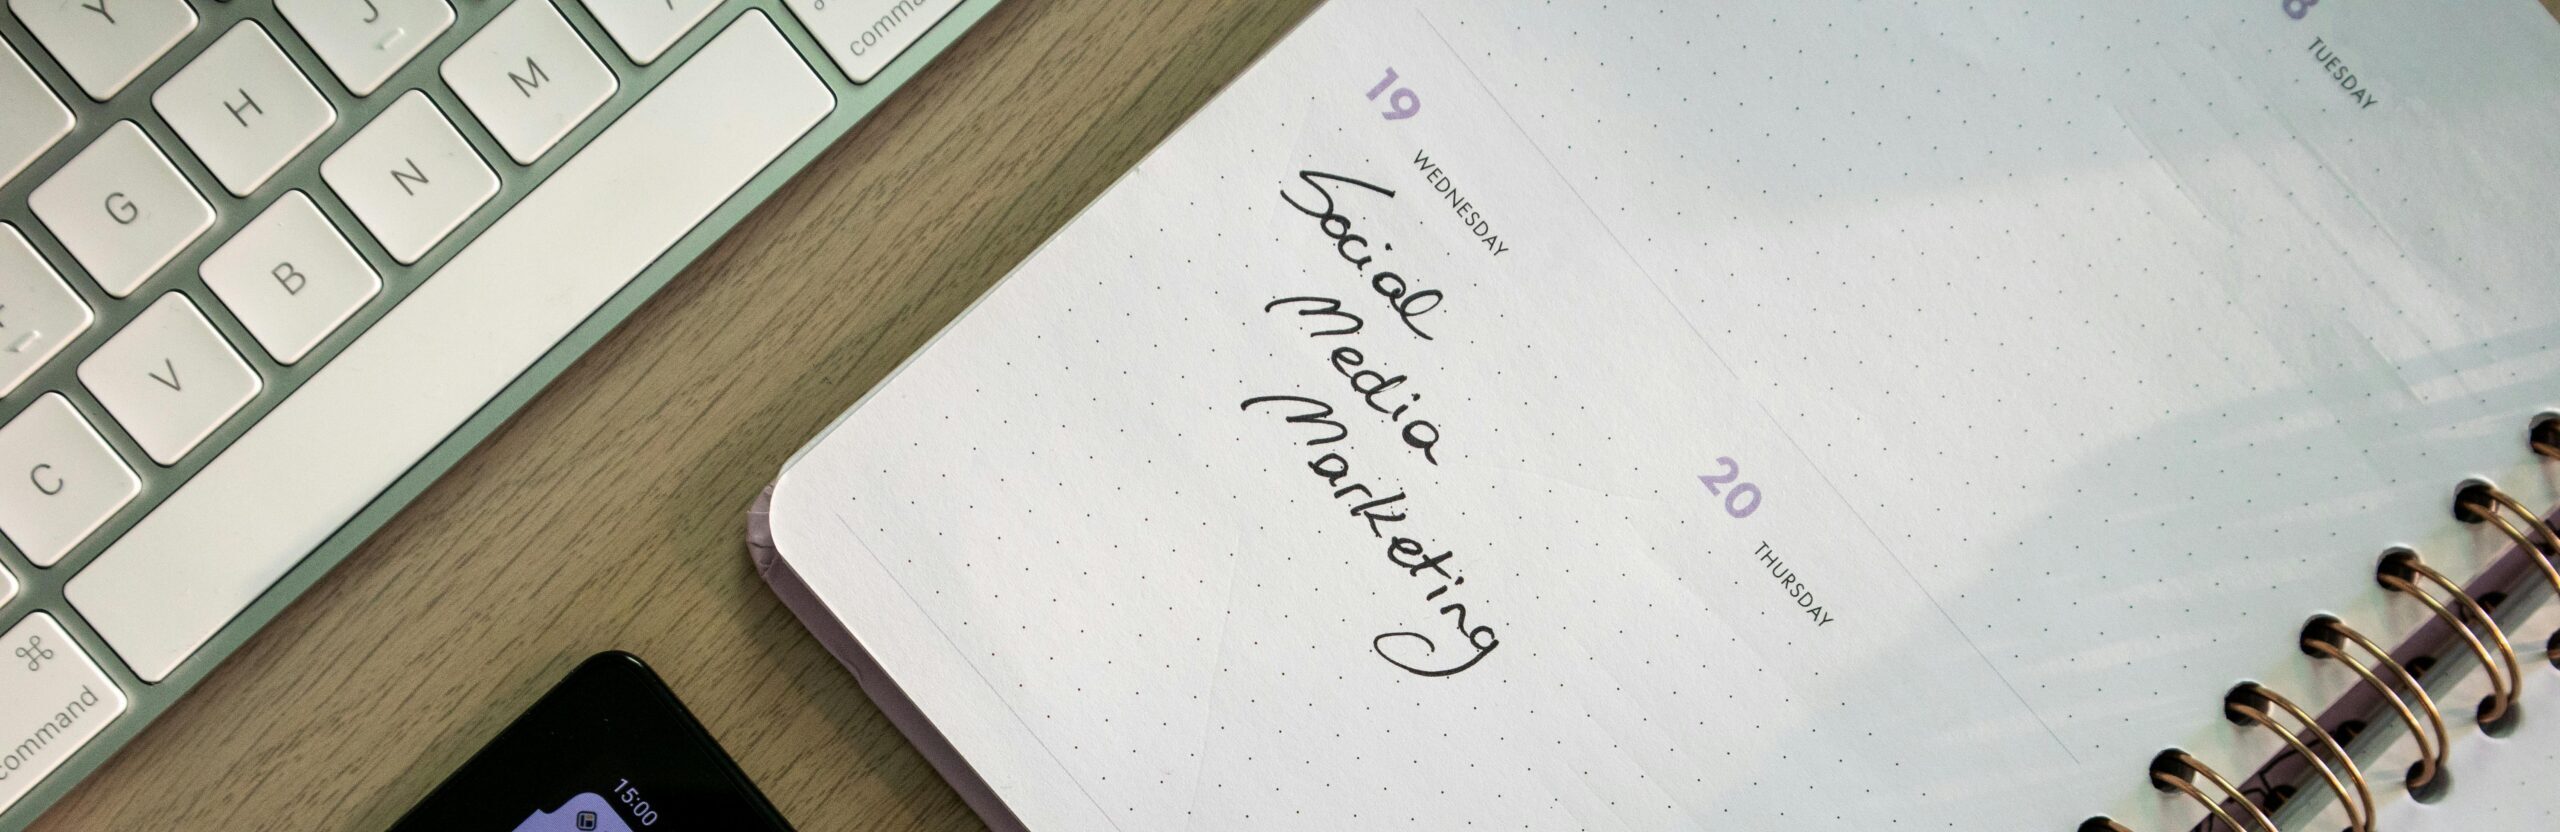 Y
J
H
M
G
N
B
V
C
command
⌘
command
8
TUESDAY
19
WEDNESDAY
Social
Media
Marketing
20
THURSDAY
15:00